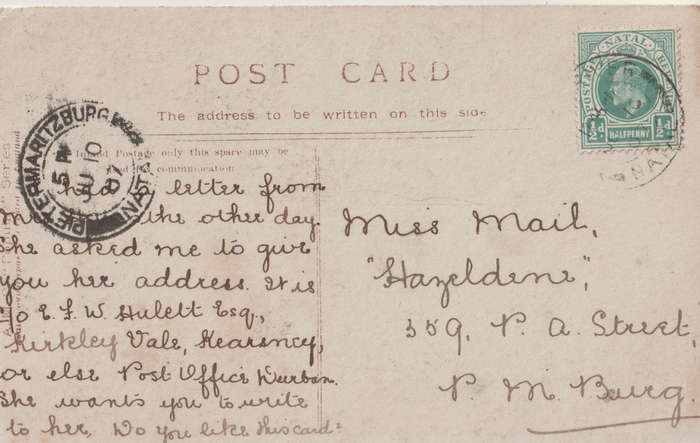 POST CARD
The address to be written on this side
Inland Postage only this space may be
communication
NATAL
POSTAGE
½d HALFPENNY ½d
PIETERMARITZBURG
5 P
10
07
NATAL
letter from
the other day.
She asked me to give
you her address. It is
c/o E. F. W. Hulett Esq.,
Kirkley Vale, Kearsney,
or else Post Office Durban.
She wants you to write
to her. Do you like this card?
Miss Mail,
"Hazeldene",
359, P. A. Street,
P. M. Burg.
Series